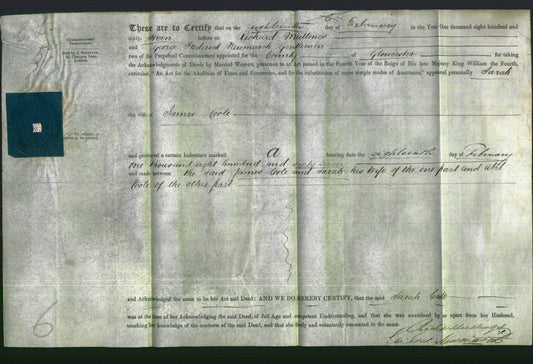 These are to Certify that on the eighteenth day of February in the Year One thousand eight hundred and
sixty seven before us Richard Mullings
and George Frederick Newmarch Gentlemen
two of the Perpetual Commissioners appointed for the County of Gloucester for taking
the Acknowledgments of Deeds by Married Women, pursuant to an Act passed in the Fourth Year of the Reign of His late Majesty King William the Fourth,
entitled, "An Act for the Abolition of Fines and Recoveries, and for the substitution of more simple modes of Assurance," appeared personally Sarah
the wife of James Cole
and produced a certain Indenture marked A bearing date the eighteenth day of February
one thousand eight hundred and sixty seven
and made between the said James Cole and Sarah his wife of the one part and
Cole of the other part
and Acknowledged the same to be her Act and Deed: AND WE DO HEREBY CERTIFY, that the said Sarah Cole
was at the time of her Acknowledging the said Deed, of full Age and competent Understanding, and that she was examined by us apart from her Husband,
touching her knowledge of the contents of the said Deed, and that she freely and voluntarily consented to the same.
6